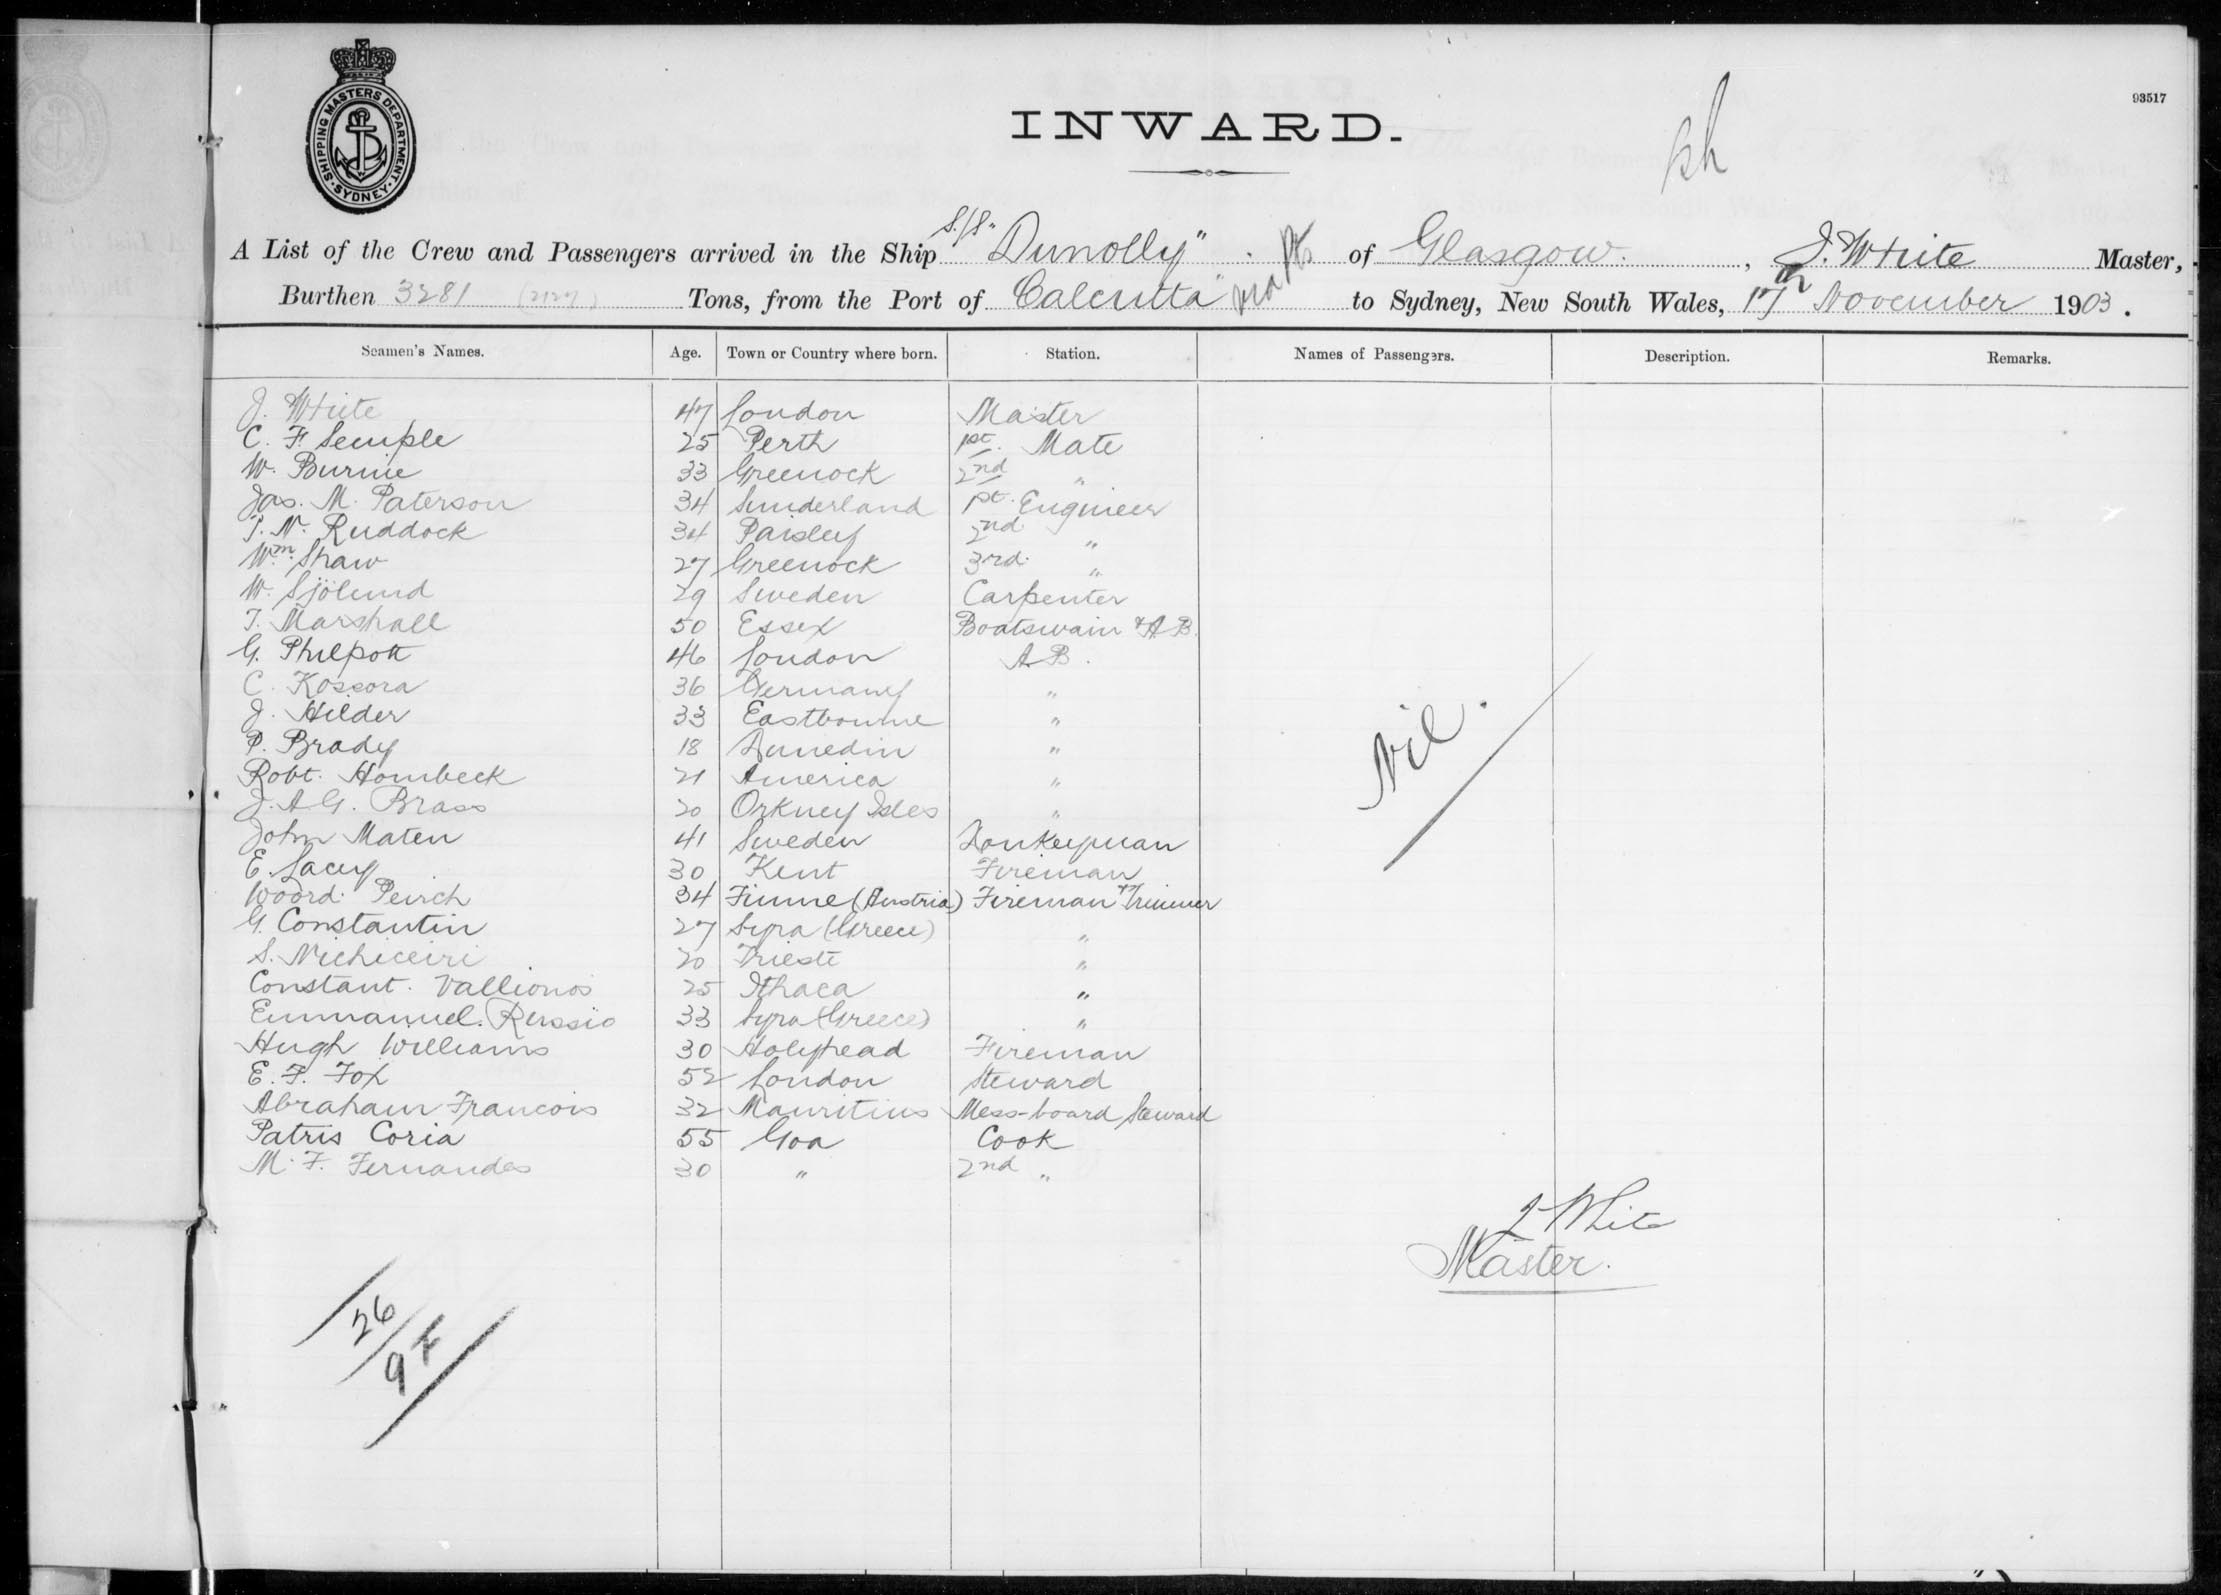 SHIPPING MASTERS DEPARTMENT
SYDNEY
93517
INWARD.
A List of the Crew and Passengers arrived in the Ship S/S "Dunolly" of Glasgow, J. White Master,
Burthen 3281 (2127) Tons, from the Port of Calcutta to Sydney, New South Wales, 17th November 1903.
Seamen's Names. Age. Town or Country where born. Station. Names of Passengers. Description. Remarks.
J. White 47 London Master
C. F. Semple 25 Perth 1st. Mate
W. Burnie 33 Greenock 2nd "
Jas. M. Paterson 34 Sunderland 1st. Engineer
T. N. Ruddock 34 Paisley 2nd "
Wm. Shaw 27 Greenock 3rd. "
W. Sjölund 29 Sweden Carpenter
T. Marshall 50 Essex Boatswain & A B.
G. Philpott 46 London A B.
C. Kossora 36 Germany "
J. Hilder 33 Eastbourne "
P. Brady 18 Dunedin "
Robt. Hornbeck 21 America "
J. A. G. Brass 20 Orkney Isles "
John Maten 41 Sweden Donkeyman
E. Lacey 30 Kent Fireman
34 Fiume (Austria) Fireman & Trimmer
G. Constantin 27 Syra (Greece) "
S. 20 Trieste "
Constant. Vallionos 25 Ithaca "
Emmanuel. 33 Syra (Greece) "
Hugh Williams 30 Holyhead Fireman
E. F. Fox 52 London Steward
Abraham Francois 32 Mauritius Mess-board Steward
Patris Coria 55 Goa Cook
M. F. Fernandes 30 " 2nd "
Nil.
J White
Master.
26
9 F